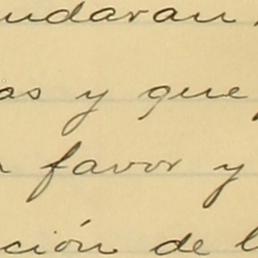 udaran
as y que
favor y
ción de